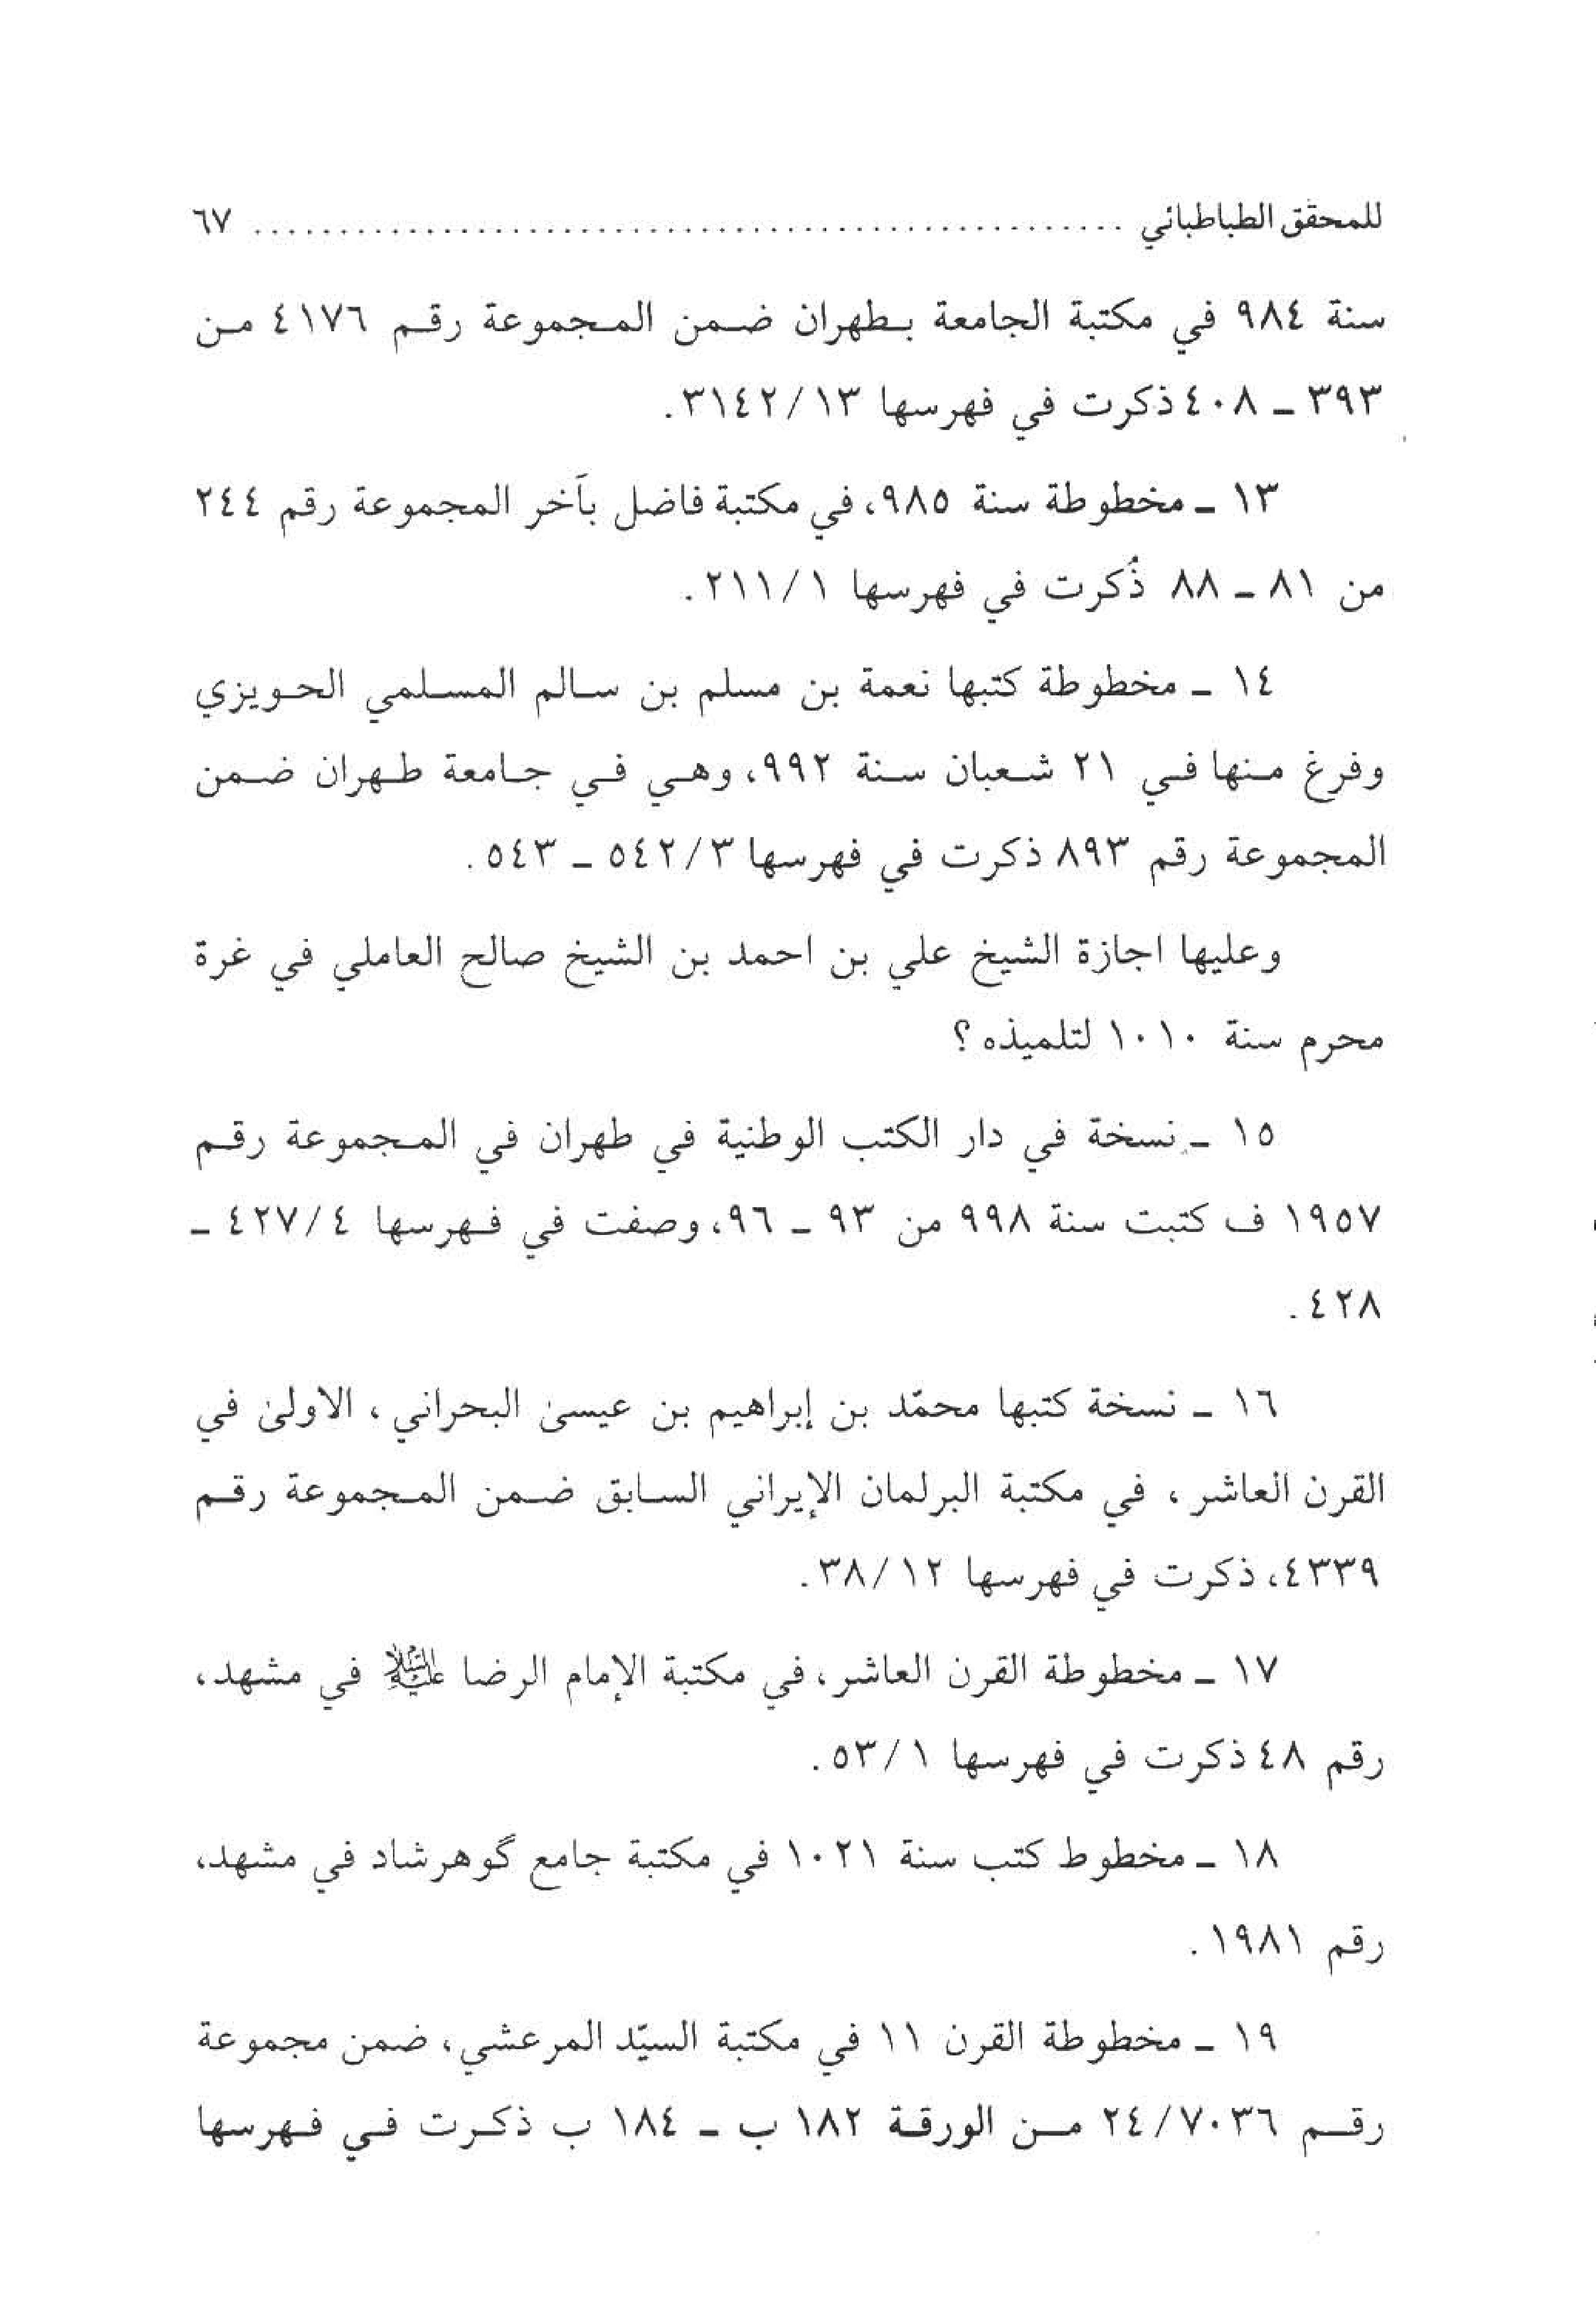 للمحقق الطباطبائي ................................................ ٦٧
سنة ٩٨٤ في مكتبة الجامعة بـطهران ضـمن المـجموعة رقـم ٤١٧٦ مـن
٣٩٣ ـ ٤٠٨ ذكرت في فهرسها ٣١٤٢/١٣.
١٣ ـ مخطوطة سنة ٩٨٥، في مكتبة فاضل بآخر المجموعة رقم ٢٤٤
من ٨١ ـ ٨٨ ذُكرت في فهرسها ٢١١/١.
١٤ ـ مخطوطة كتبها نعمة بن مسلم بن سـالم المسـلمي الحـويزي
وفرغ مـنها فـي ٢١ شـعبان سـنة ٩٩٢، وهـي فـي جـامعة طـهران ضـمن
المجموعة رقم ٨٩٣ ذكرت في فهرسها ٥٤٢/٣ ـ ٥٤٣.
وعليها اجازة الشيخ علي بن احمد بن الشيخ صالح العاملي في غرة
محرم سنة ١٠١٠ لتلميذه ؟
١٥ ـ نسخة في دار الكتب الوطنية في طهران في المـجموعة رقـم
١٩٥٧ ف كتبت سنة ٩٩٨ من ٩٣ ـ ٩٦، وصفت في فـهرسها ٤٢٧/٤ ـ
٤٢٨.
١٦ ـ نسخة كتبها محمّد بن إبراهيم بن عيسىٰ البحراني ، الاولىٰ في
القرن العاشر ، في مكتبة البرلمان الإيراني السـابق ضـمن المـجموعة رقـم
٤٣٣٩، ذكرت في فهرسها ٣٨/١٢.
١٧ ـ مخطوطة القرن العاشر، في مكتبة الإمام الرضا عليه السلام في مشهد،
رقم ٤٨ ذكرت في فهرسها ٥٣/١.
١٨ ـ مخطوط كتب سنة ١٠٢١ في مكتبة جامع گوهرشاد في مشهد،
رقم ١٩٨١.
١٩ ـ مخطوطة القرن ١١ في مكتبة السيّد المرعشي، ضمن مجموعة
رقـم ٢٤/٧٠٣٦ مـن الورقـة ١٨٢ ب ـ ١٨٤ ب ذكـرت فـي فـهرسها